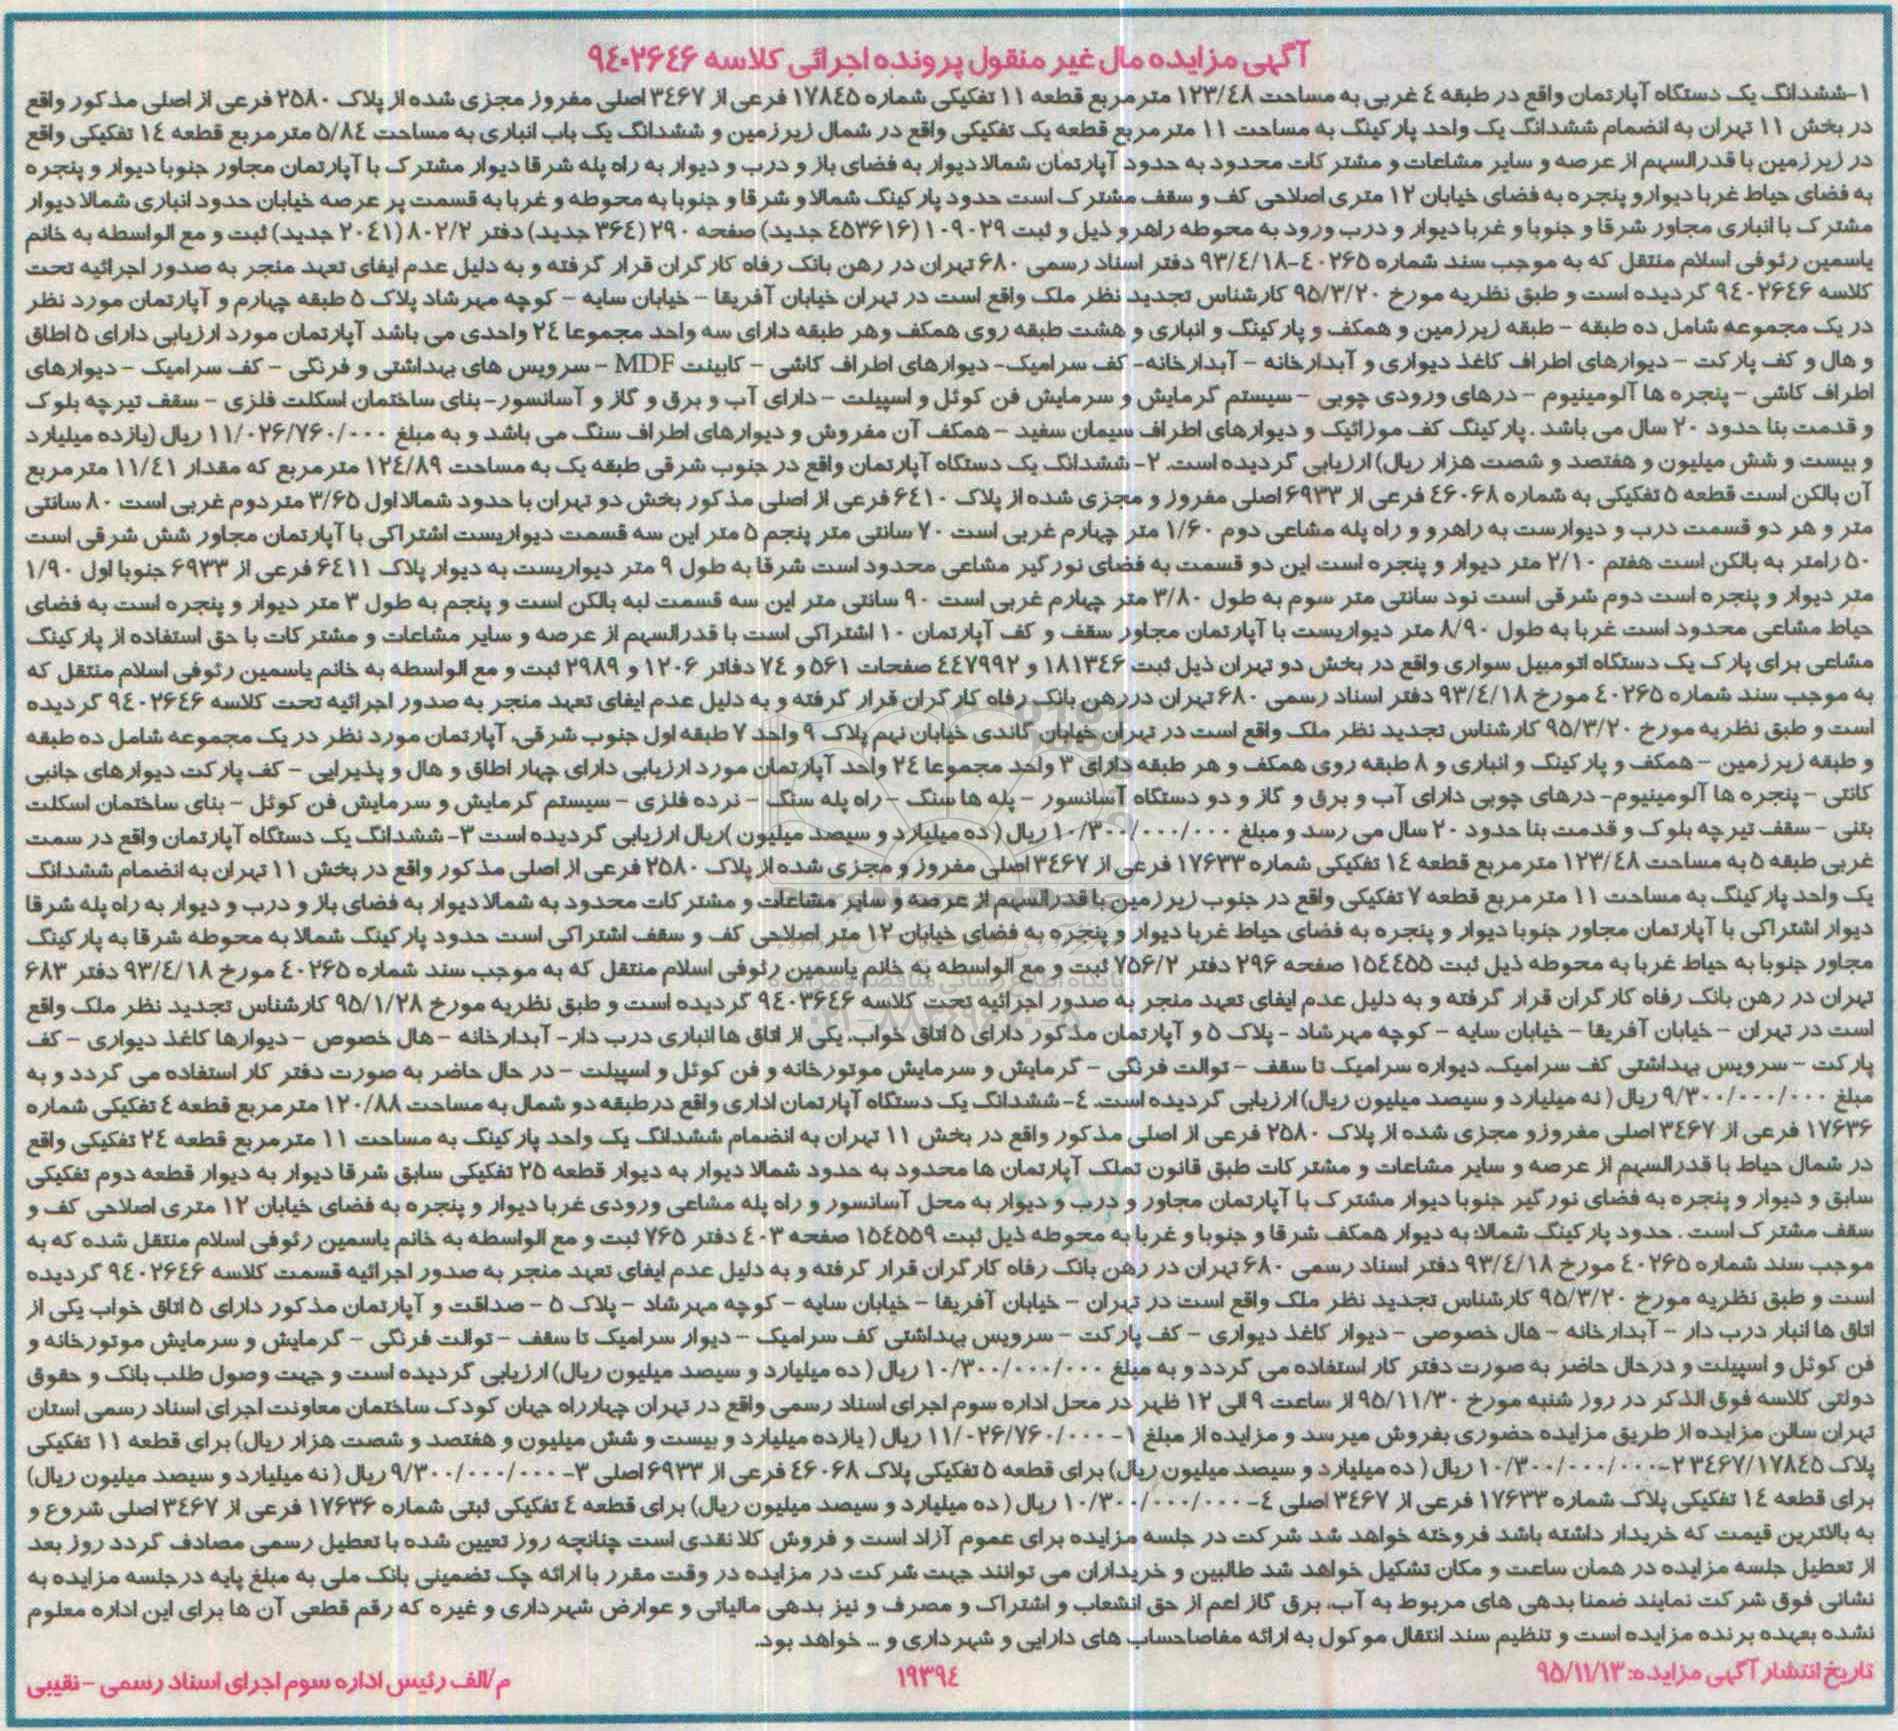 آگهی مزایده مال غیر منقول پرونده اجرائی کلاسه ۹٤۰۲٦٤٦
۱-ششدانگ یک دستگاه آپارتمان واقع در طبقه ٤ غربی به مساحت ۱۲۳/٤۸ مترمربع قطعه ۱۱ تفکیکی شماره ۱۷۸٤۵ فرعی از ۳٤٦۷ اصلی مفروز مجزی شده از پلاک ۲۵۸۰ فرعی از اصلی مذکور واقع
در بخش ۱۱ تهران به انضمام ششدانگ یک واحد پارکینگ به مساحت ۱۱ مترمربع قطعه یک تفکیکی واقع در شمال زیرزمین و ششدانگ یک باب انباری به مساحت ۵/۸٤ مترمربع قطعه ۱٤ تفکیکی واقع
در زیرزمین با قدرالسهم از عرصه و سایر مشاعات و مشترکات محدود به حدود آپارتمان شمالا دیوار به فضای باز و درب و دیوار به راه پله شرقا دیوار مشترک با آپارتمان مجاور جنوبا دیوار و پنجره
به فضای حیاط غربا دیوارو پنجره به فضای خیابان ۱۲ متری اصلاحی کف و سقف مشترک است حدود پارکینگ شمالا و شرقا و جنوبا به محوطه و غربا به قسمت پر عرصه خیابان حدود انباری شمالا دیوار
مشترک با انباری مجاور شرقا و جنوبا و غربا دیوار و درب ورود به محوطه راهرو ذیل و ثبت ۱۰۹۰۲۹ (٤۵۳٦۱٦ جدید) صفحه ۲۹۰ (۳٦٤ جدید) دفتر ۸۰۲/۲ (۲۰٤۱ جدید) ثبت و مع الواسطه به خانم
یاسمین رئوفی اسلام منتقل که به موجب سند شماره ٤۰۲٦۵-۹۳/٤/۱۸ دفتر اسناد رسمی ٦۸۰ تهران در رهن بانک رفاه کارگران قرار گرفته و به دلیل عدم ایفای تعهد منجر به صدور اجرائیه تحت
کلاسه ۹٤۰۲٦٤٦ گردیده است و طبق نظریه مورخ ۹۵/۳/۲۰ کارشناس تجدید نظر ملک واقع است در تهران خیابان آفریقا – خیابان سایه – کوچه مهرشاد پلاک ۵ طبقه چهارم و آپارتمان مورد نظر
در یک مجموعه شامل ده طبقه – طبقه زیرزمین و همکف و پارکینگ و انباری و هشت طبقه روی همکف وهر طبقه دارای سه واحد مجموعا ۲٤ واحدی می باشد آپارتمان مورد ارزیابی دارای ۵ اطاق
و هال و کف پارکت – دیوارهای اطراف کاغذ دیواری و آبدارخانه – آبدارخانه- کف سرامیک- دیوارهای اطراف کاشی – کابینت MDF – سرویس های بهداشتی و فرنگی – کف سرامیک – دیوارهای
اطراف کاشی – پنجره ها آلومینیوم – درهای ورودی چوبی – سیستم گرمایش و سرمایش فن کوئل و اسپیلت – دارای آب و برق و گاز و آسانسور- بنای ساختمان اسکلت فلزی – سقف تیرچه بلوک
و قدمت بنا حدود ۲۰ سال می باشد . پارکینگ کف موزائیک و دیوارهای اطراف سیمان سفید – همکف آن مفروش و دیوارهای اطراف سنگ می باشد و به مبلغ ۱۱/۰۲٦/۷٦۰/۰۰۰ ریال (یازده میلیارد
و بیست و شش میلیون و هفتصد و شصت هزار ریال) ارزیابی گردیده است. ۲- ششدانگ یک دستگاه آپارتمان واقع در جنوب شرقی طبقه یک به مساحت ۱۲٤/۸۹ مترمربع که مقدار ۱۱/٤۱ مترمربع
آن بالکن است قطعه ۵ تفکیکی به شماره ٤٦۰٦۸ فرعی از ٦۹۳۳ اصلی مفروز و مجزی شده از پلاک ٦٤۱۰ فرعی از اصلی مذکور بخش دو تهران با حدود شمالا اول ۳/٦۵ متردوم غربی است ۸۰ سانتی
متر و هر دو قسمت درب و دیوارست به راهرو و راه پله مشاعی دوم ۱/٦۰ متر چهارم غربی است ۷۰ سانتی متر پنجم ۵ متر این سه قسمت دیواریست اشتراکی با آپارتمان مجاور شش شرقی است
۵۰ رامتر به بالکن است هفتم ۲/۱۰ متر دیوار و پنجره است این دو قسمت به فضای نورگیر مشاعی محدود است شرقا به طول ۹ متر دیواریست به دیوار پلاک ٦٤۱۱ فرعی از ٦۹۳۳ جنوبا اول ۱/۹۰
متر دیوار و پنجره است دوم شرقی است نود سانتی متر سوم به طول ۳/۸۰ متر چهارم غربی است ۹۰ سانتی متر این سه قسمت لبه بالکن است و پنجم به طول ۳ متر دیوار و پنجره است به فضای
حیاط مشاعی محدود است غربا به طول ۸/۹۰ متر دیواریست با آپارتمان مجاور سقف و کف آپارتمان ۱۰ اشتراکی است با قدرالسهم از عرصه و سایر مشاعات و مشترکات با حق استفاده از پارکینگ
مشاعی برای پارک یک دستگاه اتومبیل سواری واقع در بخش دو تهران ذیل ثبت ۱۸۱۳٤٦ و ٤٤۷۹۹۲ صفحات ۵٦۱ و ۷٤ دفاتر ۱۲۰٦ و ۲۹۸۹ ثبت و مع الواسطه به خانم یاسمین رئوفی اسلام منتقل که
به موجب سند شماره ٤۰۲٦۵ مورخ ۹۳/٤/۱۸ دفتر اسناد رسمی ٦۸۰ تهران دررهن بانک رفاه کارگران قرار گرفته و به دلیل عدم ایفای تعهد منجر به صدور اجرائیه تحت کلاسه ۹٤۰۲٦٤٦ گردیده
است و طبق نظریه مورخ ۹۵/۳/۲۰ کارشناس تجدید نظر ملک واقع است در تهران خیابان گاندی خیابان نهم پلاک ۹ واحد ۷ طبقه اول جنوب شرقی. آپارتمان مورد نظر در یک مجموعه شامل ده طبقه
و طبقه زیرزمین – همکف و پارکینگ و انباری و ۸ طبقه روی همکف و هر طبقه دارای ۳ واحد مجموعا ۲٤ واحد آپارتمان مورد ارزیابی دارای چهار اطاق و هال و پذیرایی – کف پارکت دیوارهای جانبی
کانتی – پنجره ها آلومینیوم- درهای چوبی دارای آب و برق و گاز و دو دستگاه آسانسور – پله ها سنگ – راه پله سنگ – نرده فلزی – سیستم گرمایش و سرمایش فن کوئل – بنای ساختمان اسکلت
بتنی – سقف تیرچه بلوک و قدمت بنا حدود ۲۰ سال می رسد و مبلغ ۱۰/۳۰۰/۰۰۰/۰۰۰ ریال ( ده میلیارد و سیصد میلیون )ریال ارزیابی گردیده است ۳- ششدانگ یک دستگاه آپارتمان واقع در سمت
غربی طبقه ۵ به مساحت ۱۲۳/٤۸ مترمربع قطعه ۱٤ تفکیکی شماره ۱۷٦۳۳ فرعی از ۳٤٦۷ اصلی مفروز و مجزی شده از پلاک ۲۵۸۰ فرعی از اصلی مذکور واقع در بخش ۱۱ تهران به انضمام ششدانگ
یک واحد پارکینگ به مساحت ۱۱ مترمربع قطعه ۷ تفکیکی واقع در جنوب زیرزمین با قدرالسهم از عرصه و سایر مشاعات و مشترکات محدود به شمالا دیوار به فضای باز و درب و دیوار به راه پله شرقا
دیوار اشتراکی با آپارتمان مجاور جنوبا دیوار و پنجره به فضای حیاط غربا دیوار و پنجره به فضای خیابان ۱۲ متر اصلاحی کف و سقف اشتراکی است حدود پارکینگ شمالا به محوطه شرقا به پارکینگ
مجاور جنوبا به حیاط غربا به محوطه ذیل ثبت ۱۵٤٤۵۵ صفحه ۲۹٦ دفتر ۷۵٦/۲ ثبت و مع الواسطه به خانم یاسمین رئوفی اسلام منتقل که به موجب سند شماره ٤۰۲٦۵ مورخ ۹۳/٤/۱۸ دفتر ٦۸۳
تهران در رهن بانک رفاه کارگران قرار گرفته و به دلیل عدم ایفای تعهد منجر به صدور اجرائیه تحت کلاسه ۹٤۰۳٦٤٦ گردیده است و طبق نظریه مورخ ۹۵/۱/۲۸ کارشناس تجدید نظر ملک واقع
است در تهران – خیابان آفریقا – خیابان سایه – کوچه مهرشاد - پلاک ۵ و آپارتمان مذکور دارای ۵ اتاق خواب. یکی از اتاق ها انباری درب دار- آبدارخانه – هال خصوص – دیوارها کاغذ دیواری – کف
پارکت – سرویس بهداشتی کف سرامیک. دیواره سرامیک تا سقف – توالت فرنگی – گرمایش و سرمایش موتورخانه و فن کوئل و اسپیلت – در حال حاضر به صورت دفتر کار استفاده می گردد و به
مبلغ ۹/۳۰۰/۰۰۰/۰۰۰ ریال ( نه میلیارد و سیصد میلیون ریال) ارزیابی گردیده است. ٤- ششدانگ یک دستگاه آپارتمان اداری واقع درطبقه دو شمال به مساحت ۱۲۰/۸۸ مترمربع قطعه ٤ تفکیکی شماره
۱۷٦۳٦ فرعی از ۳٤٦۷ اصلی مفروزو مجزی شده از پلاک ۲۵۸۰ فرعی از اصلی مذکور واقع در بخش ۱۱ تهران به انضمام ششدانگ یک واحد پارکینگ به مساحت ۱۱ مترمربع قطعه ۲٤ تفکیکی واقع
در شمال حیاط با قدرالسهم از عرصه و سایر مشاعات و مشترکات طبق قانون تملک آپارتمان ها محدود به حدود شمالا دیوار به دیوار قطعه ۲۵ تفکیکی سابق شرقا دیوار به دیوار قطعه دوم تفکیکی
سابق و دیوار و پنجره به فضای نورگیر جنوبا دیوار مشترک با آپارتمان مجاور و درب و دیوار به محل آسانسور و راه پله مشاعی ورودی غربا دیوار و پنجره به فضای خیابان ۱۲ متری اصلاحی کف و
سقف مشترک است . حدود پارکینگ شمالا: به دیوار همکف شرقا و جنوبا و غربا به محوطه ذیل ثبت ۱۵٤۵۵۹ صفحه ٤۰۳ دفتر ۷٦۵ ثبت و مع الواسطه به خانم یاسمین رئوفی اسلام منتقل شده که به
موجب سند شماره ٤۰۲٦۵ مورخ ۹۳/٤/۱۸ دفتر اسناد رسمی ٦۸۰ تهران در رهن بانک رفاه کارگران قرار گرفته و به دلیل عدم ایفای تعهد منجر به صدور اجرائیه قسمت کلاسه ۹٤۰۲٦٤٦ گردیده
است و طبق نظریه مورخ ۹۵/۳/۲۰ کارشناس تجدید نظر ملک واقع است در تهران – خیابان آفریقا – خیابان سایه – کوچه مهرشاد – پلاک ۵ - صداقت و آپارتمان مذکور دارای ۵ اتاق خواب یکی از
اتاق ها انبار درب دار – آبدارخانه – هال خصوصی – دیوار کاغذ دیواری – کف پارکت – سرویس بهداشتی کف سرامیک – دیوار سرامیک تا سقف – توالت فرنگی – گرمایش و سرمایش موتورخانه و
فن کوئل و اسپیلت و درحال حاضر به صورت دفتر کار استفاده می گردد و به مبلغ ۱۰/۳۰۰/۰۰۰/۰۰۰ ریال ( ده میلیارد و سیصد میلیون ریال) ارزیابی گردیده است و جهت وصول طلب بانک و حقوق
دولتی کلاسه فوق الذکر در روز شنبه مورخ ۹۵/۱۱/۳۰ از ساعت ۹ الی ۱۲ ظهر در محل اداره سوم اجرای اسناد رسمی واقع در تهران چهارراه جهان کودک ساختمان معاونت اجرای اسناد رسمی استان
تهران سالن مزایده از طریق مزایده حضوری بفروش میرسد و مزایده از مبلغ ۱- ۱۱/۰۲٦/۷٦۰/۰۰۰ ریال ( یازده میلیارد و بیست و شش میلیون و هفتصد و شصت هزار ریال) برای قطعه ۱۱ تفکیکی
پلاک ۳٤٦۷/۱۷۸٤۵ ۲-۱۰/۳۰۰/۰۰۰/۰۰۰ ریال ( ده میلیارد و سیصد میلیون ریال) برای قطعه ۵ تفکیکی پلاک ٤٦۰٦۸ فرعی از ٦۹۳۳ اصلی ۳- ۹/۳۰۰/۰۰۰/۰۰۰ ریال ( نه میلیارد و سیصد میلیون ریال)
برای قطعه ۱٤ تفکیکی پلاک شماره ۱۷٦۳۳ فرعی از ۳٤٦۷ اصلی ٤- ۱۰/۳۰۰/۰۰۰/۰۰۰ ریال ( ده میلیارد و سیصد میلیون ریال) برای قطعه ٤ تفکیکی ثبتی شماره ۱۷٦۳٦ فرعی از ۳٤٦۷ اصلی شروع و
به بالاترین قیمت که خریدار داشته باشد فروخته خواهد شد شرکت در جلسه مزایده برای عموم آزاد است و فروش کلا نقدی است چنانچه روز تعیین شده با تعطیل رسمی مصادف گردد روز بعد
از تعطیل جلسه مزایده در همان ساعت و مکان تشکیل خواهد شد طالبین و خریداران می توانند جهت شرکت در مزایده در وقت مقرر با ارائه چک تضمینی بانک ملی به مبلغ پایه درجلسه مزایده به
نشانی فوق شرکت نمایند ضمنا بدهی های مربوط به آب. برق گاز اعم از حق انشعاب و اشتراک و مصرف و نیز بدهی مالیاتی و عوارض شهرداری و غیره که رقم قطعی آن ها برای این اداره معلوم
نشده بعهده برنده مزایده است و تنظیم سند انتقال موکول به ارائه مفاصاحساب های دارایی و شهرداری و ... خواهد بود.
تاریخ انتشار آگهی مزایده: ۹۵/۱۱/۱۳ ۱۹۳۹٤ م/الف رئیس اداره سوم اجرای اسناد رسمی –نقیبی